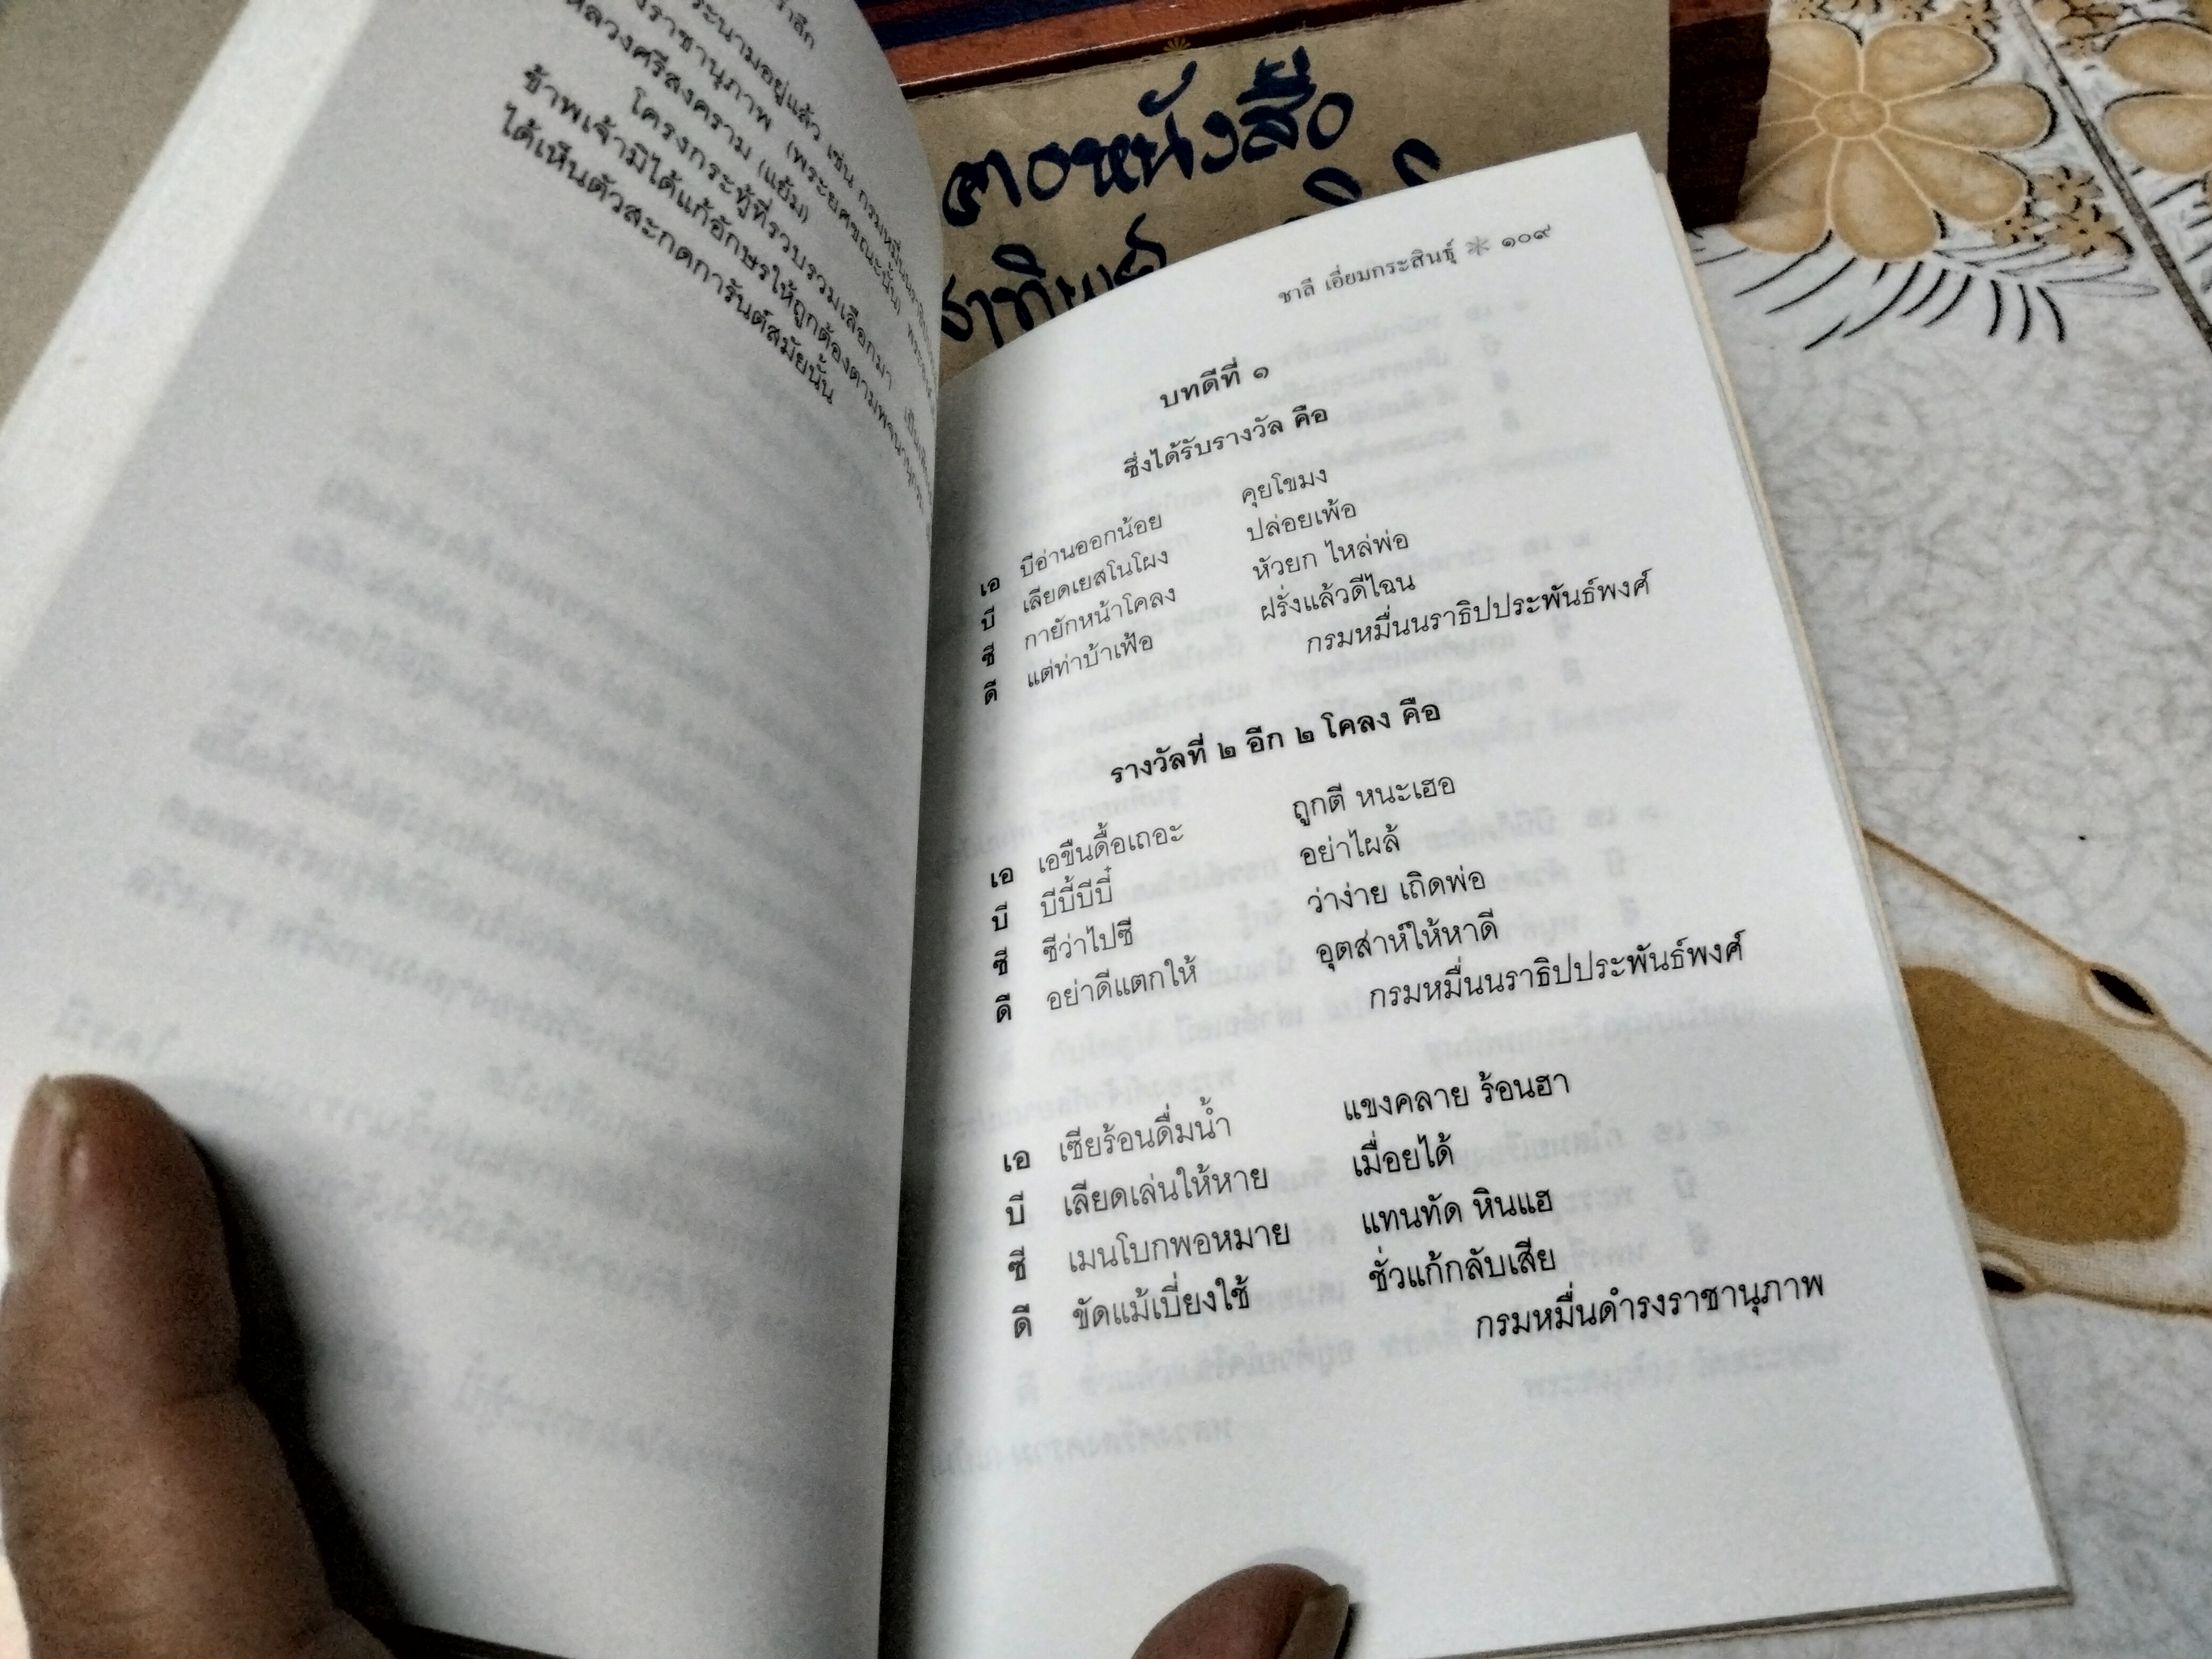 ระนามอยู่แล้ว เช่น กรมหมื่น
งราชานุภาพ (พระยศขณะนั้น)
หลวงศรีสงคราม (แย้ม)
โครงกระทู้ที่รวบรวมเลือกมา
ข้าพเจ้ามิได้แก้อักษรให้ถูกต้องตามพจนานุกร
ได้เห็นตัวสะกดการันต์สมัยนั้น
หนังสือ
ชาลี เอี่ยมกระสินธุ์ ✳ ๑๐๙
บทดีที่ ๑
ซึ่งได้รับรางวัล คือ
เอ บีอ่านออกน้อย คุยโขมง
บี เลียดเยสโนโผง ปล่อยเพ้อ
ซี กายักหน้าโคลง หัวยก ไหล่พ่อ
ดี แต่ท่าบ้าเฟ้อ ฝรั่งแล้วดีไฉน
กรมหมื่นนราธิปประพันธ์พงศ์
รางวัลที่ ๒ อีก ๒ โคลง คือ
เอ เอขืนดื้อเถอะ ถูกตี หนะเฮอ
บี บีบี้บีบี๋ อย่าไผล้
ซี ซีว่าไปซี ว่าง่าย เถิดพ่อ
ดี อย่าดีแตกให้ อุตส่าห์ให้หาดี
กรมหมื่นนราธิปประพันธ์พงศ์
เอ เซียร้อนดื่มน้ำ แขงคลาย ร้อนฮา
บี เลียดเล่นให้หาย เมื่อยได้
ซี เมนโบกพอหมาย แทนทัด หินแฮ
ดี ขัดแม้เบี่ยงใช้ ชั่วแก้กลับเสีย
กรมหมื่นดำรงราชานุภาพ